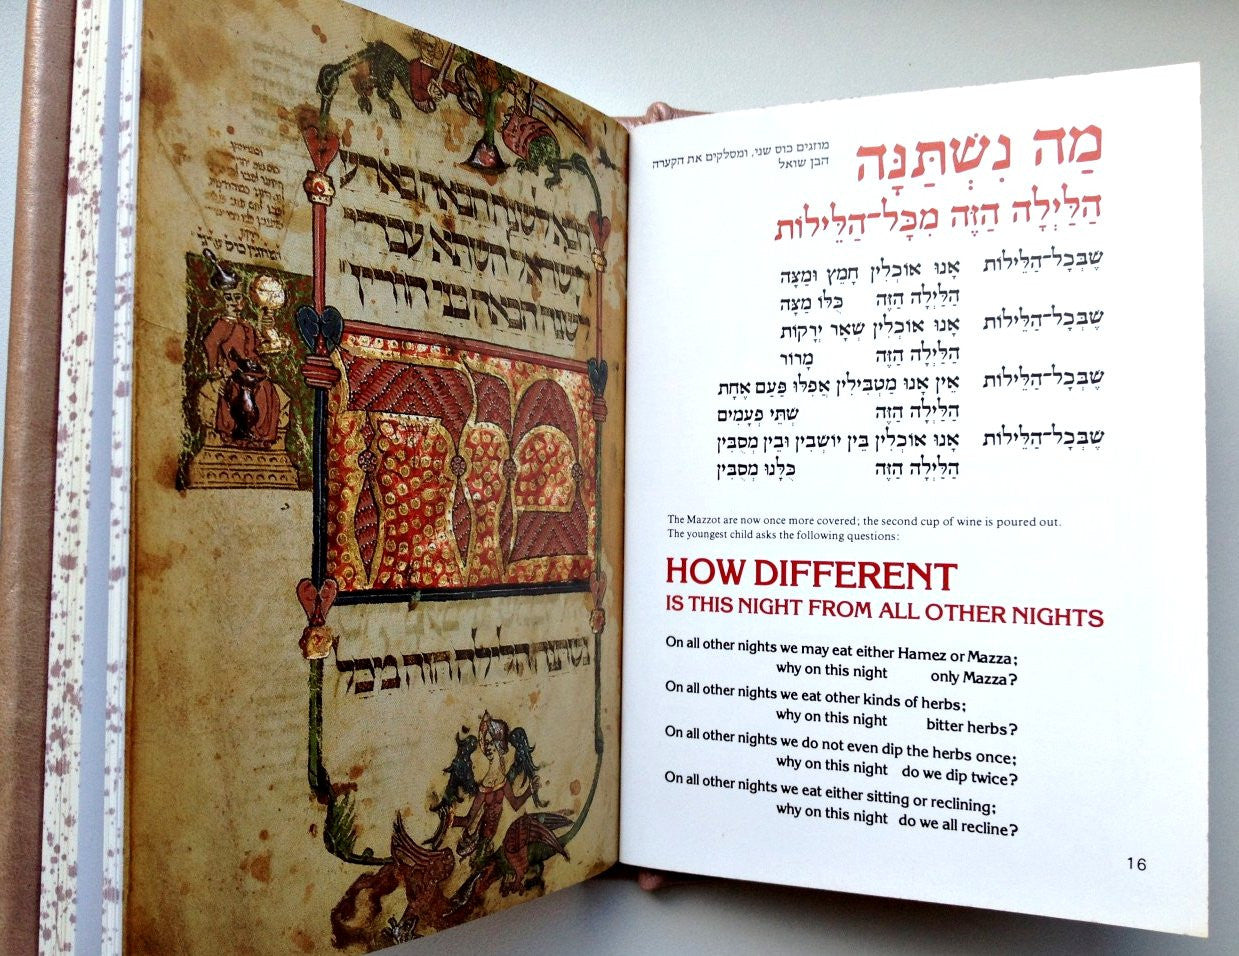 הכא לשנה הבאה בארע
דישראל השתא עבדי
לשנה הבאה בני חורין
מה
נשתנה הלילה הזה מכל
מַה נִּשְׁתַּנָּה
מוזגים כוס שני, ומסלקים את הקערה
הבן שואל
הַלַּיְלָה הַזֶּה מִכָּל־הַלֵּילוֹת
שֶׁבְּכָל־הַלֵּילוֹת אָנוּ אוֹכְלִין חָמֵץ וּמַצָּה
הַלַּיְלָה הַזֶּה כֻּלּוֹ מַצָּה
שֶׁבְּכָל־הַלֵּילוֹת אָנוּ אוֹכְלִין שְׁאָר יְרָקוֹת
הַלַּיְלָה הַזֶּה מָרוֹר
שֶׁבְּכָל־הַלֵּילוֹת אֵין אָנוּ מַטְבִּילִין אֲפִלּוּ פַּעַם אֶחָת
הַלַּיְלָה הַזֶּה שְׁתֵּי פְעָמִים
שֶׁבְּכָל־הַלֵּילוֹת אָנוּ אוֹכְלִין בֵּין יוֹשְׁבִין וּבֵין מְסֻבִּין
הַלַּיְלָה הַזֶּה כֻּלָּנוּ מְסֻבִּין
The Mazzot are now once more covered; the second cup of wine is poured out.
The youngest child asks the following questions:
HOW DIFFERENT
IS THIS NIGHT FROM ALL OTHER NIGHTS
On all other nights we may eat either Hamez or Mazza;
why on this night only Mazza?
On all other nights we eat other kinds of herbs;
why on this night bitter herbs?
On all other nights we do not even dip the herbs once;
why on this night do we dip twice?
On all other nights we eat either sitting or reclining;
why on this night do we all recline?
16